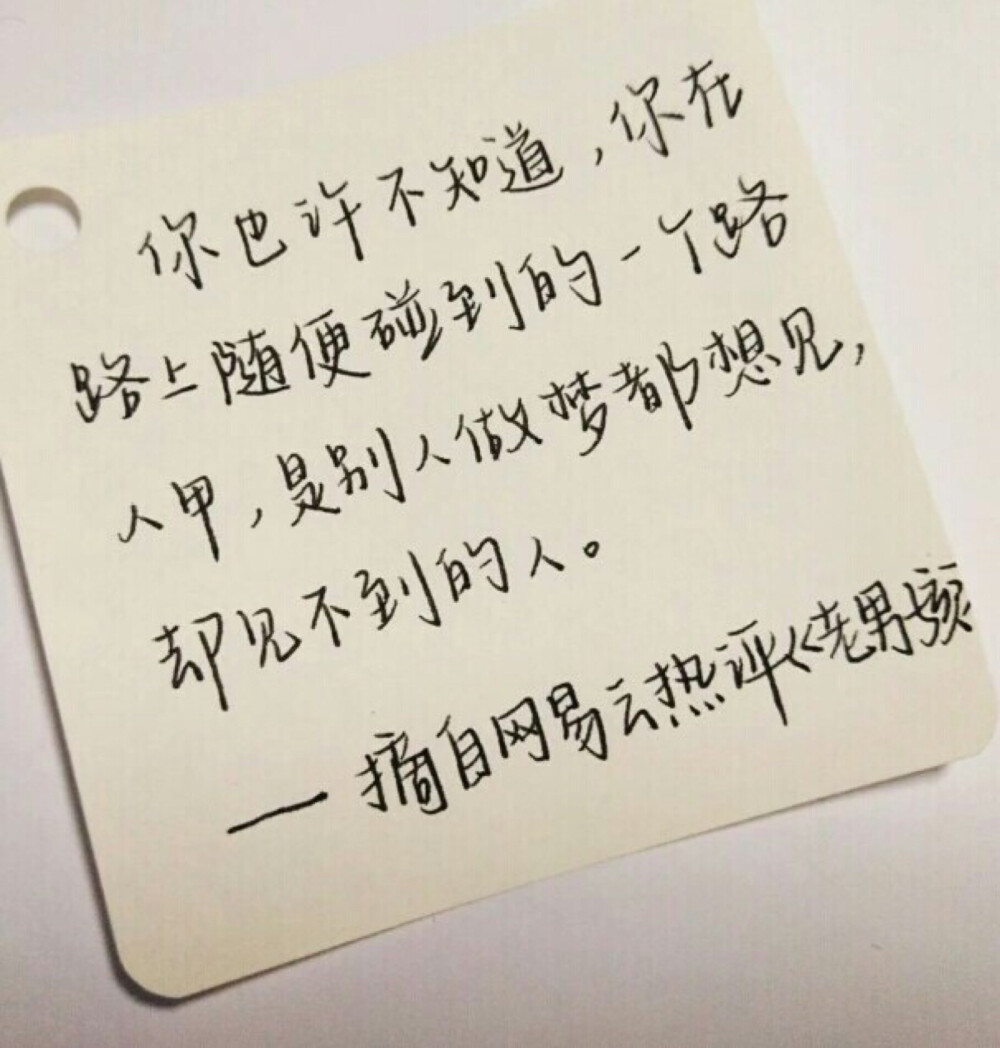 你也许不知道，你在
路上随便碰到的一个路
人甲，是别人做梦都想见，
却见不到的人。
—摘自网易云热评《老男孩